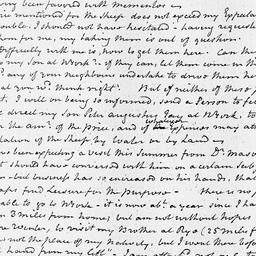 been favored with mementos
mentioned for the Sheep does not exceed my Expectat
trouble. I should not have hesitated - having request
them for me, my taking them is out of question.
Difficulty with me is, how to get them here. Can the
to my son at Work? if they can, let them come in th
any of your neighbours undertake to drive them he
at you wd. think right? But if neither of these o
I will on being so informed, send a Person to fe
direct my Son Peter Augustus Jay at Work, to
the amt. of the Price, and of Expenses may att
of the Sheep by Water or by Land
been expecting a visit this summer from Dr. Maso
should have conversed with him on a certain Subj
but business has so encreased on his hands, tha
Leisure for the Purpose - there is no
able to go to Work - it is now abt. a year since I ha
3 miles from home; but am not without hopes
Weather, to visit my Brother at Rye (25 miles f
is not the place of my nativity, but I would there Expe
handed from my little